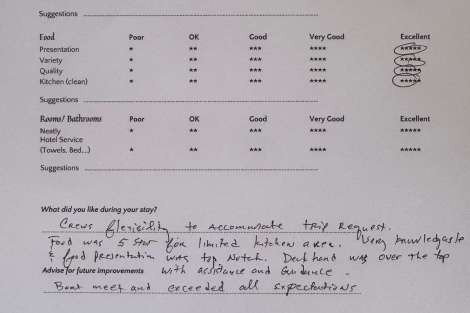 Suggestions
Food Poor OK Good Very Good Excellent
Presentation * ** *** **** *****
Variety * ** *** **** *****
Quality * ** *** **** *****
Kitchen (clean) * ** *** **** *****
Suggestions
Rooms/ Bathrooms Poor OK Good Very Good Excellent
Neatly * ** *** **** *****
Hotel Service
(Towels, Bed...) * ** *** **** *****
Suggestions
What did you like during your stay?
Crews flexibility to accommodate trip request.
Food was 5 star for limited kitchen area. Very knowledgeable
& food presentation was top notch. Deck hand was over the top
Advise for future improvements with assistance and Guidance.
Boat meet and exceeded all expectations